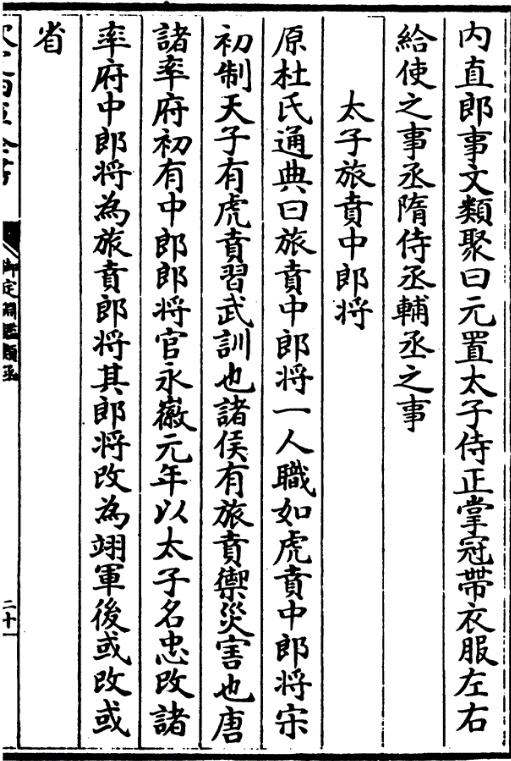 内直郎事文類聚曰元置太子侍正掌冠帶衣服左右
給使之事丞隋侍丞輔丞之事
太子旅賁中郎将
原杜氏通典曰旅賁中郎将一人職如虎賁中郎将宋
初制天子有虎賁習武訓也諸侯有旅賁禦災害也唐
諸率府初有中郎郎将官永徽元年以太子名忠改諸
率府中郎将為旅賁郎将其郎将改為翊軍後或改或
省
御定淵鑑類函
二十一